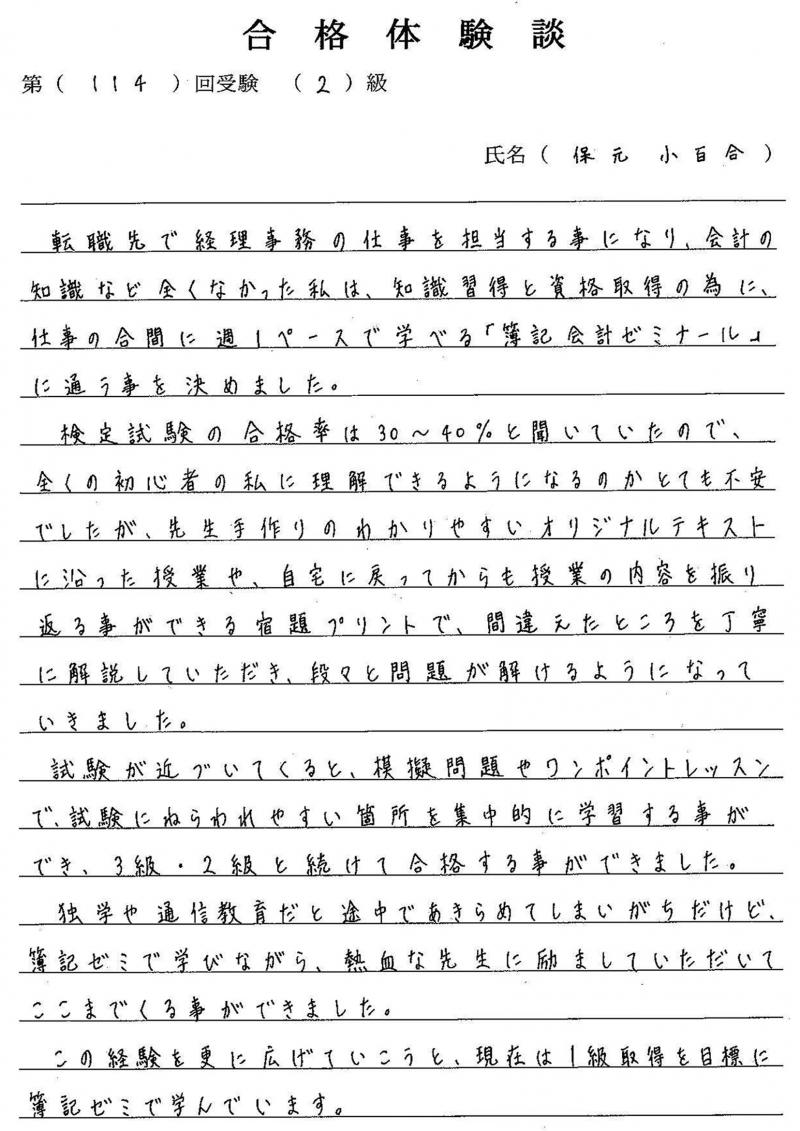 合格体験談
第（ 114 ）回受験 （ 2 ）級
氏名（ 保元 小百合 ）
転職先で経理事務の仕事を担当する事になり、会計の
知識など全くなかった私は、知識習得と資格取得の為に、
仕事の合間に週1ペースで学べる「簿記会計ゼミナール」
に通う事を決めました。
検定試験の合格率は30〜40%と聞いていたので、
全くの初心者の私に理解できるようになるのかとても不安
でしたが、先生手作りのわかりやすいオリジナルテキスト
に沿った授業や、自宅に戻ってからも授業の内容を振り
返る事ができる宿題プリントで、間違えたところを丁寧
に解説していただき、段々と問題が解けるようになって
いきました。
試験が近づいてくると、模擬問題やワンポイントレッスン
で、試験にねらわれやすい箇所を集中的に学習する事が
でき、3級・2級と続けて合格する事ができました。
独学や通信教育だと途中であきらめてしまいがちだけど、
簿記ゼミで学びながら、熱血な先生に励ましていただいて
ここまでくる事ができました。
この経験を更に広げていこうと、現在は1級取得を目標に
簿記ゼミで学んでいます。